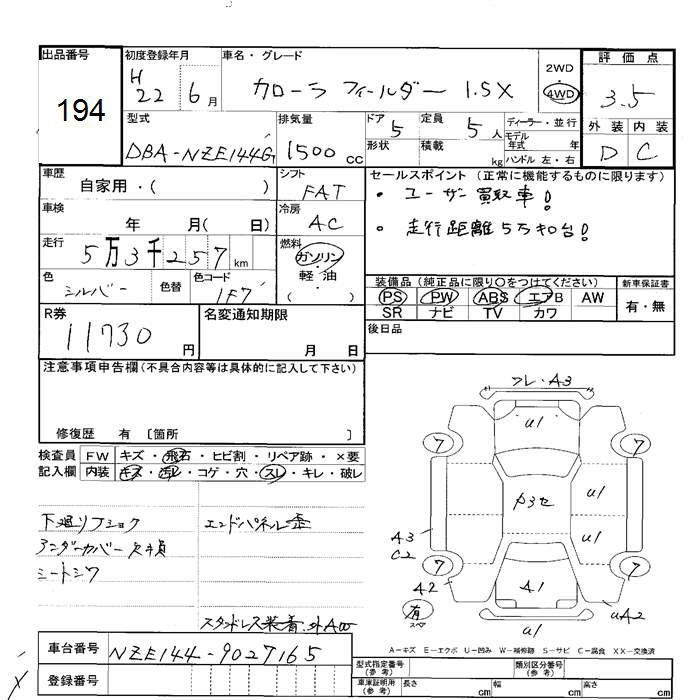 出品番号 初度登録年月 車名・グレード 評価点
194
H22 6月 カローラ フィールダー 1.5X 2WD 4WD 3.5
型式 排気量 ドア 5 定員 5人 ディーラー・並行 外装 内装
モデル年式 年
DBA-NZE144G 1500cc 形状 積載 kg ハンドル 左・右 D C
車歴 シフト セールスポイント (正常に機能するものに限ります)
自家用・( ) FAT ・ ユーザー買取車!
車検 冷房
年 月( 日) AC ・ 走行距離5万キロ台!
走行 5万3千257km 燃料 ガソリン・軽油 ( )
色 シルバー 色替 色コード 1F7
装備品 (純正品に限り○をつけてください) 新車保証書
PS PW ABS エアB AW 有・無
SR ナビ TV カワ
R券 名変通知期限 後日品
11730円 月 日
注意事項申告欄(不具合内容等は具体的に記入して下さい)
修復歴 有 〔箇所 〕
検査員 FW キズ・飛石・ヒビ割・リペア跡・×要
記入欄 内装 キズ・汚レ・コゲ・穴・スレ・キレ・破レ
フレ・A3
u1
7 7
P3セ u1
A3 u1
C2
7 7
A2 A1
有 スペ uA2
u1
下廻リフショク エンドパネル歪
アンダーカバー欠損
シートシワ
スタッドレス装着
A-キズ E-エクボ U-凹み W-補修跡 S-サビ C-腐食 XX-交換済
車台番号 NZE144-9027165
型式指定番号(参考) 類別区分番号(参考)
登録番号 車庫証明用(参考) 長さ cm 幅 cm 高さ cm